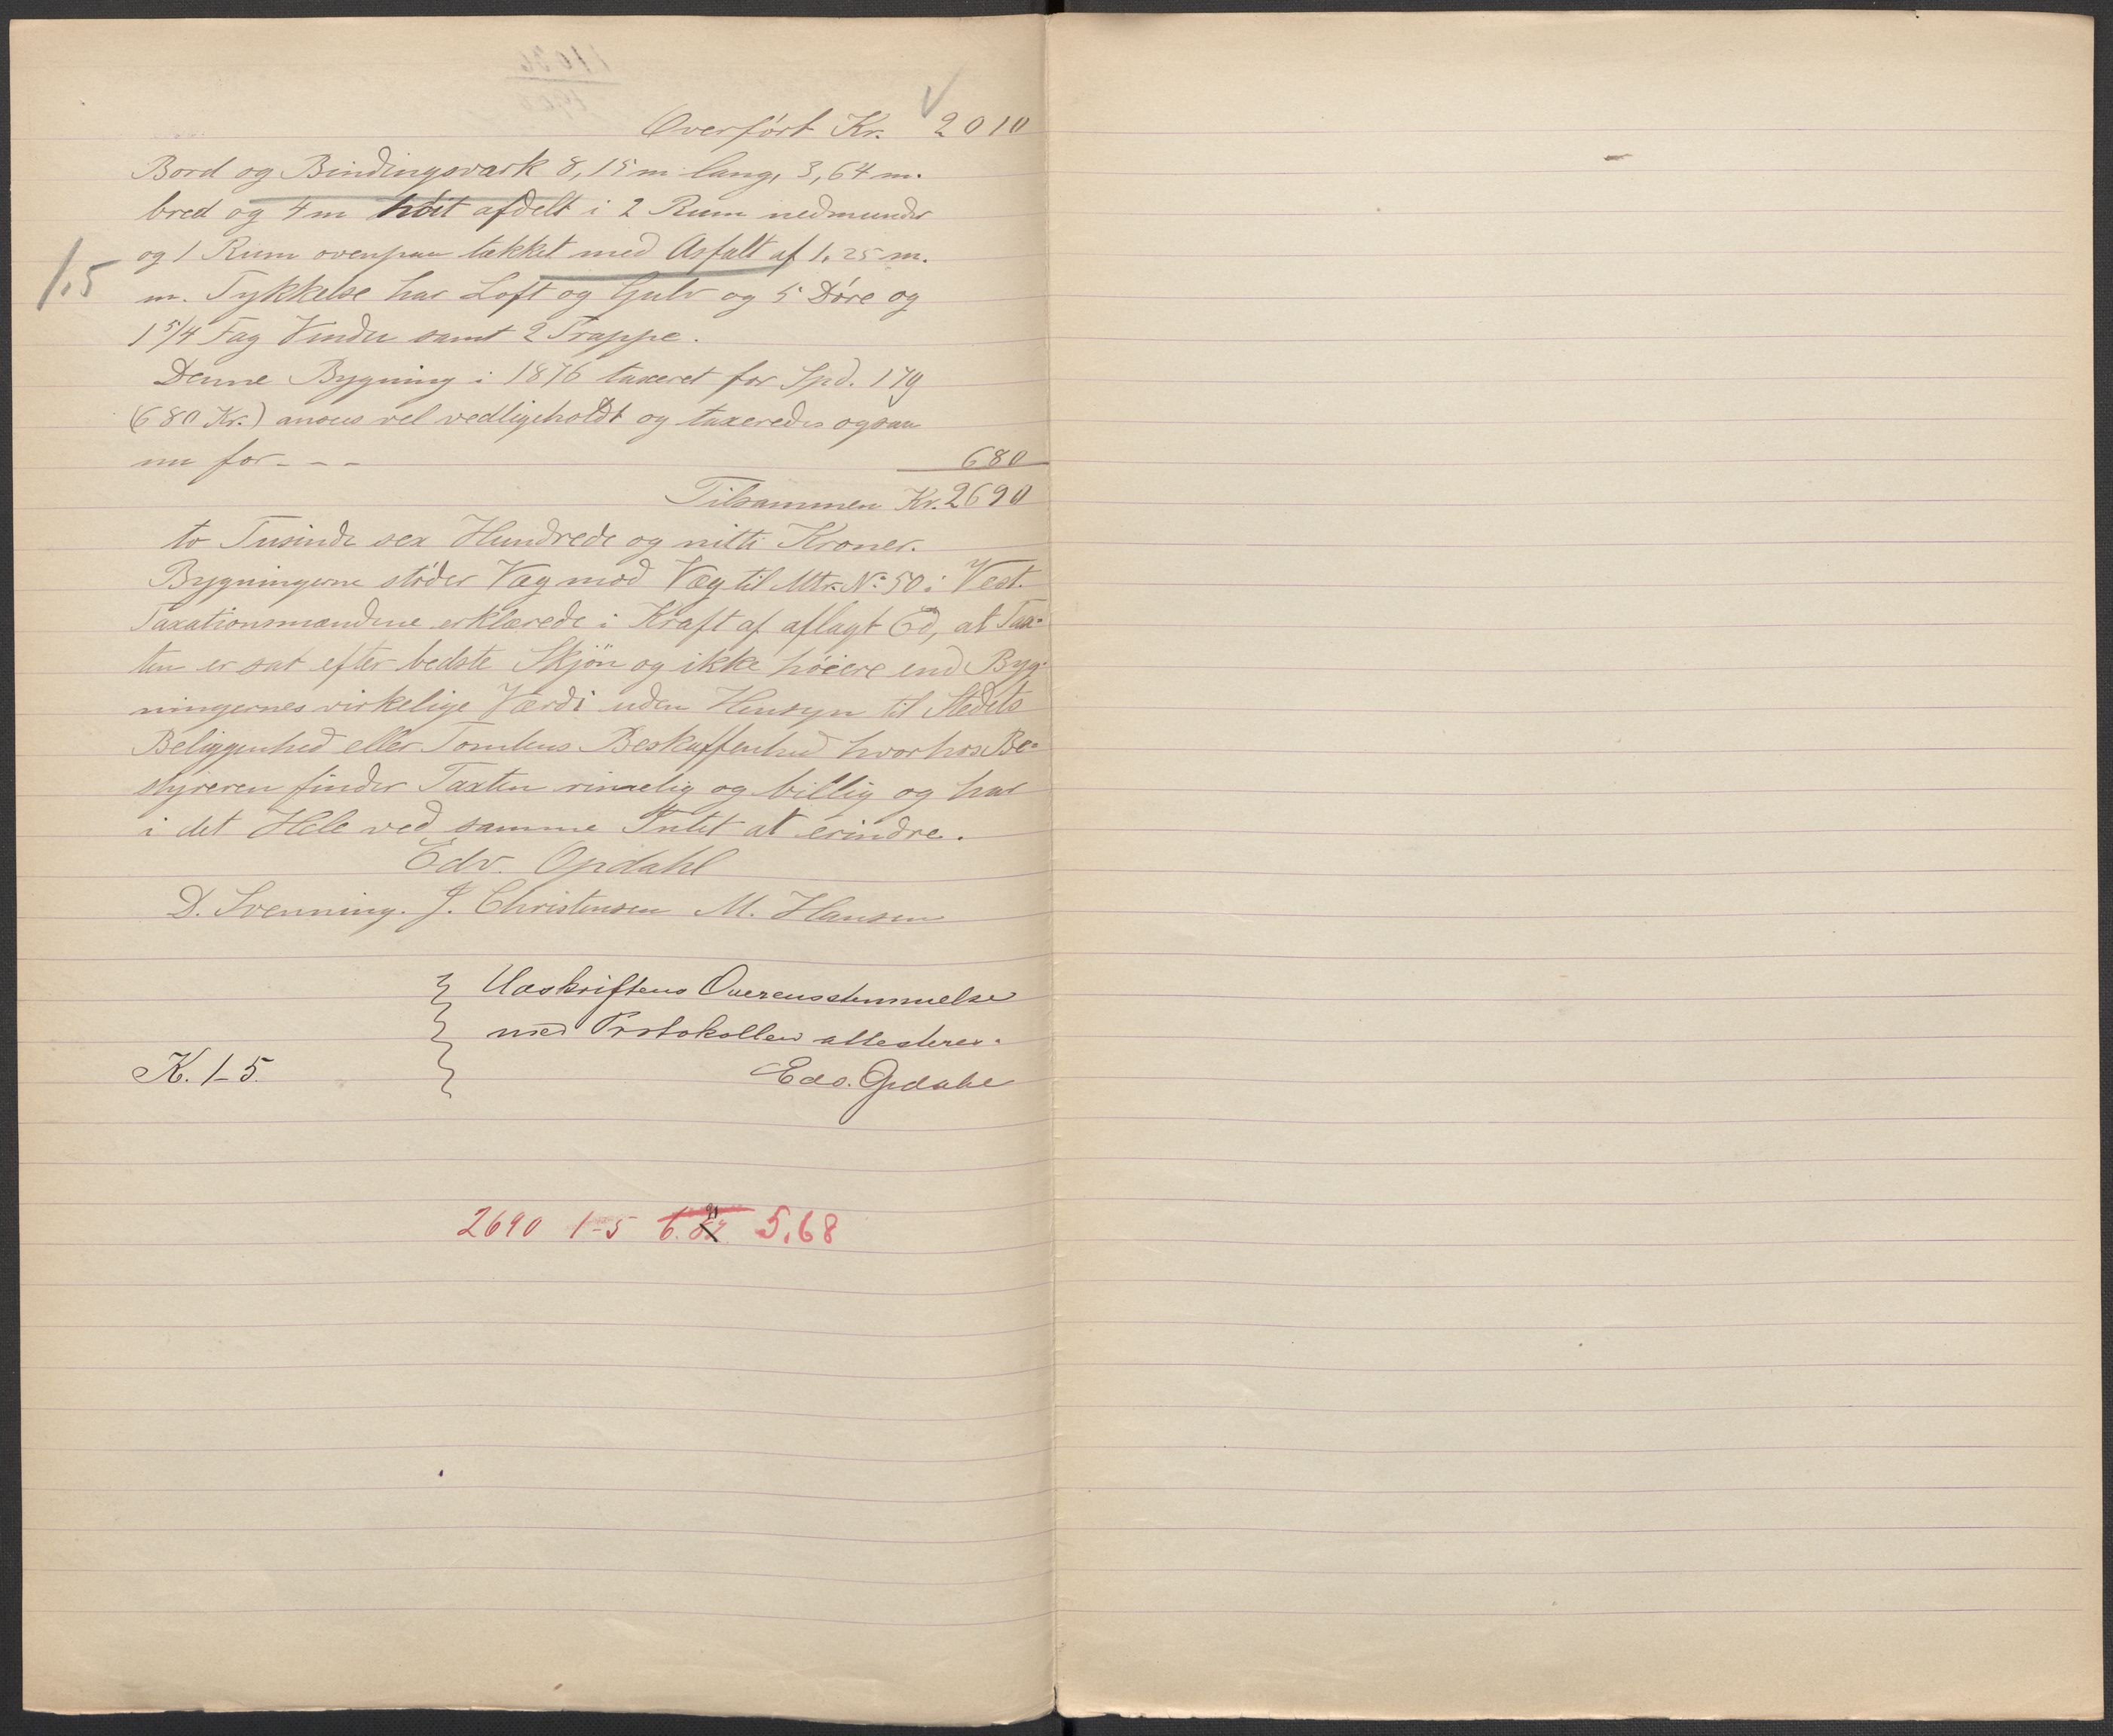 Overført Kr. 2010
Bord og Bindingsværk 8,15 m lang, 3,64 m.
bred og 4 m höit afdelt i 2 Rum nedenunder
og 1 Rum ovenpaa tækket med Asfalt af 1,25 m.
1,5
m. Tykkelse har Loft og Gulv og 5 Döre og
1 5/4 Fag Vindu samt 2 Trappe.
Denne Bygning i 1876 taxeret for Spd. 170
(680 Kr.) ansees vel vedligeholdt og taxeredes ogsaa
nu for - - - 680
Tilsammen Kr. 2690
to Tusinde sex Hundrede og nitti Kroner.
Bygningerne stöder Væg mod Væg til Mtr. No 50 i Vest.
Taxationsmændene erklærede i Kraft af aflagt Ed, at Tax-
ten er sat efter bedste Skjön og ikke höiere end Byg-
ningernes virkelige Værdi uden Hensyn til Stedets
Beliggenhed eller Tomtens Beskaffenhed hvorhos Be-
styreren finder Taxten rimelig og billig og har
i det Hele ved samme Intet at erindre.
Edv. Opdahl
D. Svenning. J. Christensen M. Hansen
Udskriftens Overensstemmelse
med Protokollen attesteres.
K. 1-5.
Edv. Opdahl
2690 1-5 5.68